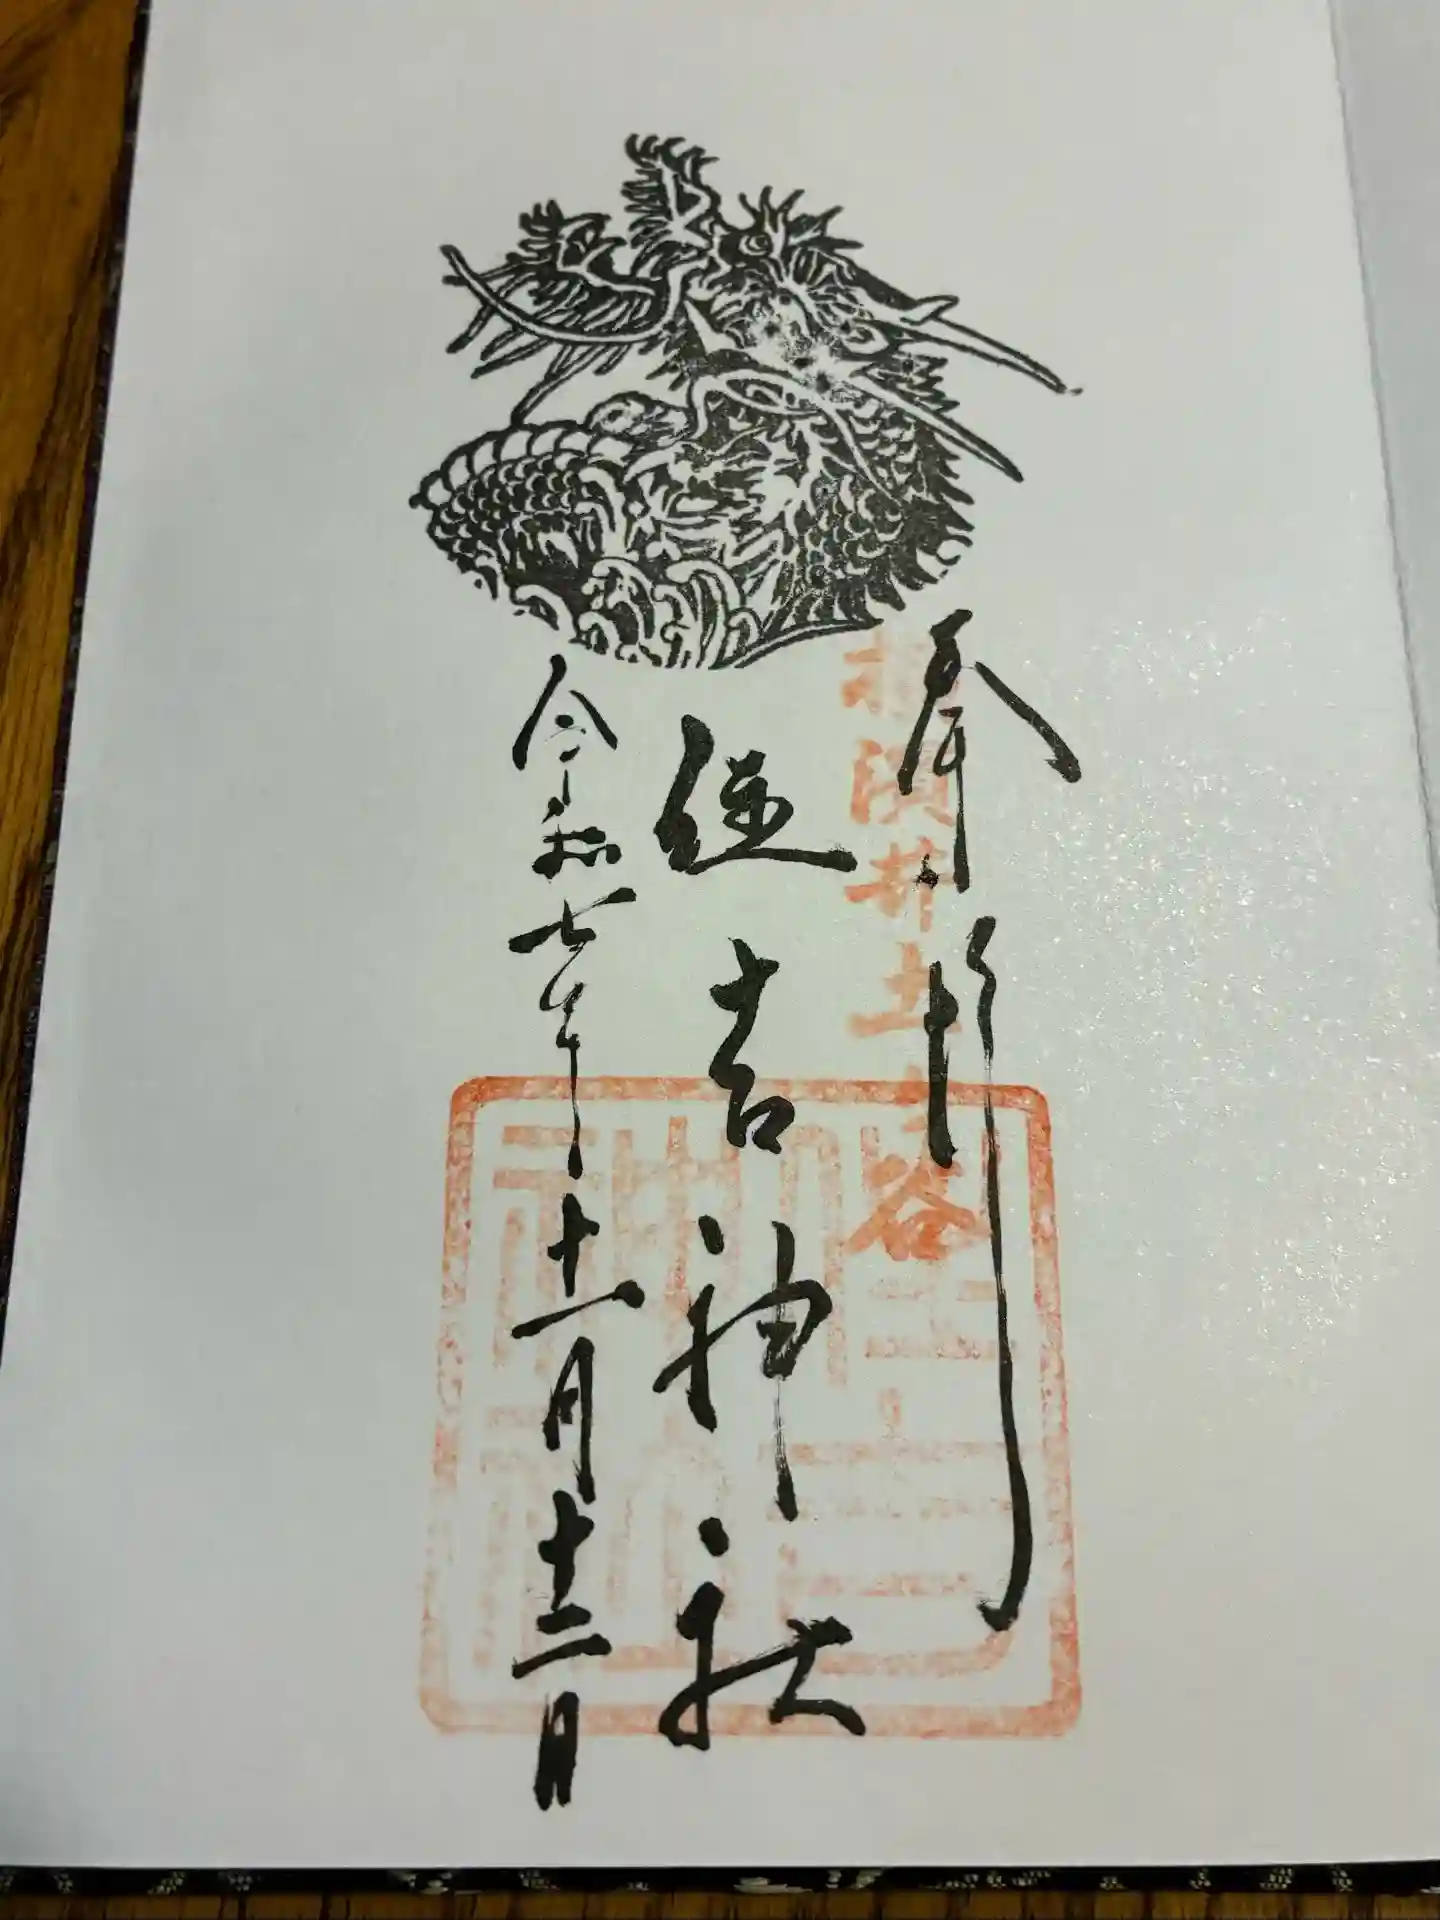 奉拝
横濱井土ヶ谷
住吉神社
令和七年十一月十二日